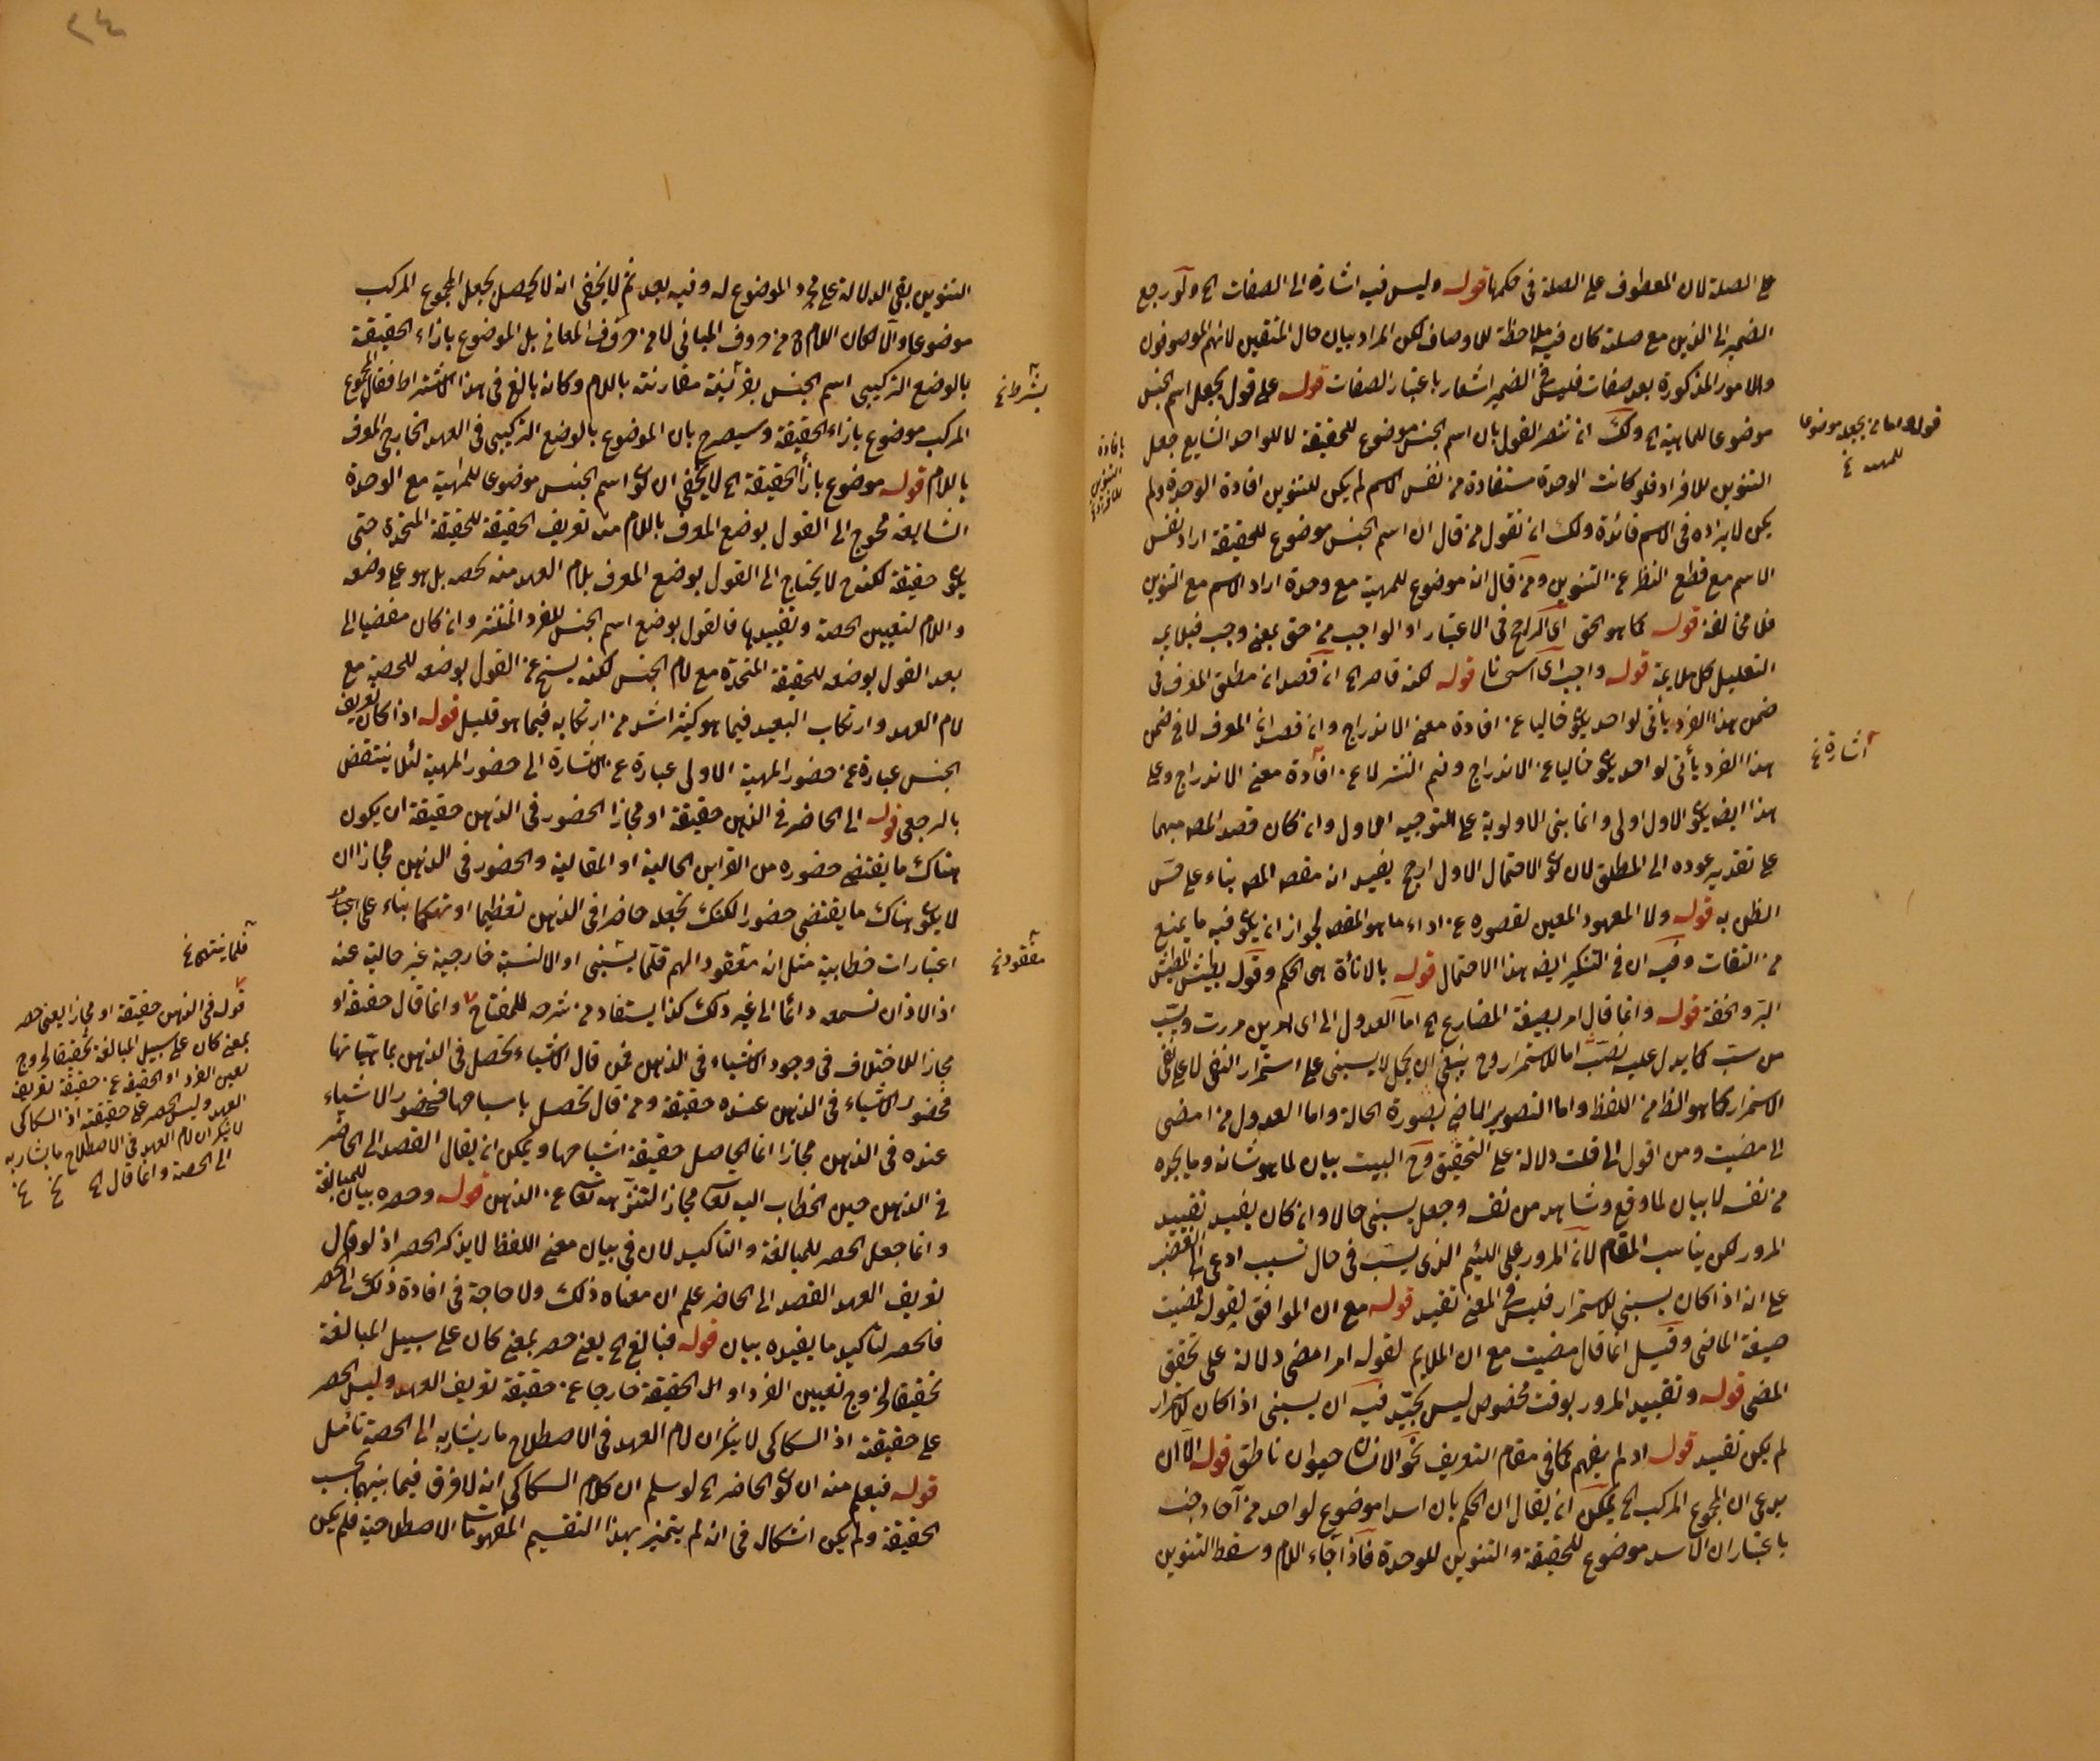 على الصلة لان المعطوف على الصلة في حكمها قوله وليس فيه اشارة الى الصفات الخ ولو رجع
الضمير الى الذين مع صلته كان فيه ملاحظة للاوصاف لكن المراد بيان حال المتقين لانهم الموصوفون
والامور المذكورة بعد صفات فليس في الضمير اشعار باعتبار الصفات قوله على قول يجعل اسم الجنس
موضوعا للماهية الخ ولك ان تنصر القول بان اسم الجنس موضوع للحقيقة لا للواحد الشايع جعل
التنوين للافراد فلو كانت الوحدة مستفادة من نفس الاسم لم يكن للتنوين افادة الوحدة ولم
يكن لايراده في الاسم فائدة ولك ان تقول من قال ان اسم الجنس موضوع للحقيقة اراد نفس
الاسم مع قطع النظر عن التنوين ومن قال انه موضوع للمهية مع وحدة اراد الاسم مع التنوين
فلا مخالفة قوله كما هو الحق اى الراجح في الاعتبار او الواجب من حق بمعنى وجب فيلايم
التعليل كل ملايمة قوله واجب اى استحسانا قوله لكنه قاصر الخ ان قصد ان مطلق المعرف في
ضمن هذا الفرد يأتى لواحد يكون خاليا عن افادة معنى الاندراج وان قصد ان المعرف لا في ضمن
هذا الفرد يأتى لواحد يكون خاليا عن الاندراج ونيم النشر لا عن افادة معنى الاندراج وعلى
هذا ايضا يكون الاول اولى وانما بنى الاولوية على التوجيه الاول وان كان قصد المص مبهما
على تقدير عوده الى المطلق لان كون الاحتمال الاول ارجح يفيد انه مقصد المص بناء على حسن
الظن به قوله ولا المعهود المعين لقصوره عن اداء ما هو المقصد لجواز ان يكون فيه ما يمنع
من الثقات وفيه ان في التنكير ايضا هذا الاحتمال قوله بالاناة هى الحكم وقوله بطيش الطيش
النزو الخفة قوله وانما قال امر بصيغة المضارع الخ اما العدول الى اى امر من مررت ويسب
من سبّ كما يدل عليه نصب اما للاستمرار وح ينبغى ان يحمل لا يسبنى على استمرار النفى لا على نفى
الاستمرار كما هو الظ من اللفظ واما التصوير الماضى بصورة الحالة واما العدول من امضى
الى مضيت ومن اقول الى قلت دلالة على التحقيق وح البيت بيان لما هو شانه وما يجده
من نفسه لا بيان لما وقع وشاهد من نفسه وجعل يسبنى حالا وان كان يفيد تقييد
المرور لكن يناسب المقام لان المرور على اللئيم الذى يسب في حال تسبب ادعى الى الغضب
على انه اذا كان يسبنى للاستمرار فليس في المعنى تقييد قوله مع ان الموافق لقوله فمضيت
صيغة الماضى وقيل انما قال مضيت مع ان الملايم لقوله امر امضى دلالة على تحقق
المضى قوله وتقييد المرور بوقت مخصوص ليس بجيد فيه ان يسبنى اذا كان للاستمرار
لم يكن تقييد قوله اذ لم يفهم كما في مقام التعريف نحو الانسان حيوان ناطق قوله الا ان
يدعى ان المجموع المركب الخ يمكن ان يقال ان الحكم بان اسدا موضوع لواحد من آحاد جنسه
باعتبار ان الاسد موضوع للحقيقة والتنوين للوحدة فاذا جاء اللام وسقط التنوين
قوله اما من يجعله موضوعا
للمهية خ
بافادة
التنوين
للافراد خ
اشارة خ
التنوين بقى الدلالة على مجرد الموضوع له وفيه بعد ثم لا يخفى انه لا يحصل بجعل المجموع المركب
موضوعا والا لكان اللام من حروف المبانى لا من حروف المعانى بل الموضوع بازاء الحقيقة
بالوضع التركيبى اسم الجنس بقرينة مقارنته باللام وكانه بالغ في هذا الاشتراط فقال المجموع
المركب موضوع بازاء الحقيقة وسيصرح بان الموضوع بالوضع التركيبى في العهد الخارجى المعرف
باللام قوله موضوع بازاء الحقيقة الخ لا يخفى ان كون اسم الجنس موضوعا للمهية مع الوحدة
الشايعة محوج الى القول بوضع المعرف باللام منه تعريف الحقيقة للحقيقة المتحدة حتى
يكون حقيقة لكنه ح لا يحتاج الى القول بوضع المعرف بلام العهد منه لحصه بل هو على وضعه
واللام لتعيين الحصة وتقييدها فالقول بوضع اسم الجنس للفرد المنتشر وان كان مفضيا الى
بعد القول بوضعه للحقيقة المتحدة مع لام الجنس لكنه يسنح عن القول بوضعه للحصة مع
لام العهد وارتكاب البعيد فيما هو كثير اشد من ارتكابه فيما هو قليل قوله اذا كان تعريف
الجنس عبارة عن حضور المهية الاولى عبارة عن الاشارة الى حضور المهية لئلا ينتقض
بالرجعى قوله الى الحاضر في الذهن حقيقة او مجازا الحضور في الذهن حقيقة ان يكون
هناك ما يقتضى حضوره من القراين الحالية او المقالية والحضور في الذهن مجازا ان
لا يكون هناك ما يقتضى حضورا لكنك تجعله حاضرا في الذهن تعظيما او تهكما بناء على اعتبار
اعتبارات خطابية مثل انه معقود الهم قلما ينسى او الالسنة خارجية غير خالية عنه
اذ الاذان تسمعه دائما الى غير ذلك كذا يستفاد من شرحه للمفتاح وانما قال حقيقة او
مجازا للاختلاف في وجود الاشياء في الذهن فمن قال الاشياء تحصل في الذهن بماهياتها
فحضور الاشياء في الذهن عنده حقيقة ومن قال تحصل باشباحها فحضور الاشياء
عنده في الذهن مجازا انما الحاصل حقيقة اشباحها ويمكن ان يقال القصد الى الحاضر
في الذهن حين الخطاب اليه تعالى مجاز لتنزهه تعالى عن الذهن قوله وحصره بيان للمبالغة
وانما جعل الحصر للمبالغة والتاكيد لان في بيان معنى اللفظ لا يذكر الحصر اذ لو قال
تعريف العهد القصد الى الحاضر علم ان معناه ذلك ولا حاجة في افادة ذلك الى الحصر
فالحصر لتاكيد ما يفيده بيان قوله فبالغ الخ يعنى حصر بمعنى كان على سبيل المبالغة
تحقيقا لخروج تعيين الفرد او الحقيقة خارجا عن حقيقة تعريف العهد وليس الحصر
على حقيقته اذ السكاكى لا ينكر ان لام العهد في الاصطلاح ما يشار به الى الحصة تأمل
قوله فيعلم منه ان كون الحاضر الخ لو سلم ان كلام السكاكى انه لا فرق فيما بينهما بحسب
الحقيقة ولم يكن اشكال في انه لم يتميز بهذا التقسيم المفهومات الاصطلاحية فلم يكن
بشرط خ
مفقود خ
فلما ينتهى خ
قوله في الذهن حقيقة او مجازا يعنى حصر
بمعنى كان على سبيل المبالغة تحقيقا لخروج
تعيين الفرد او الحقيقة عن حقيقة تعريف
العهد وليس الحصر على حقيقته اذ السكاكى
لا ينكر ان لام العهد في الاصطلاح ما يشار به
الى الحصة وانما قال الخ خ خ